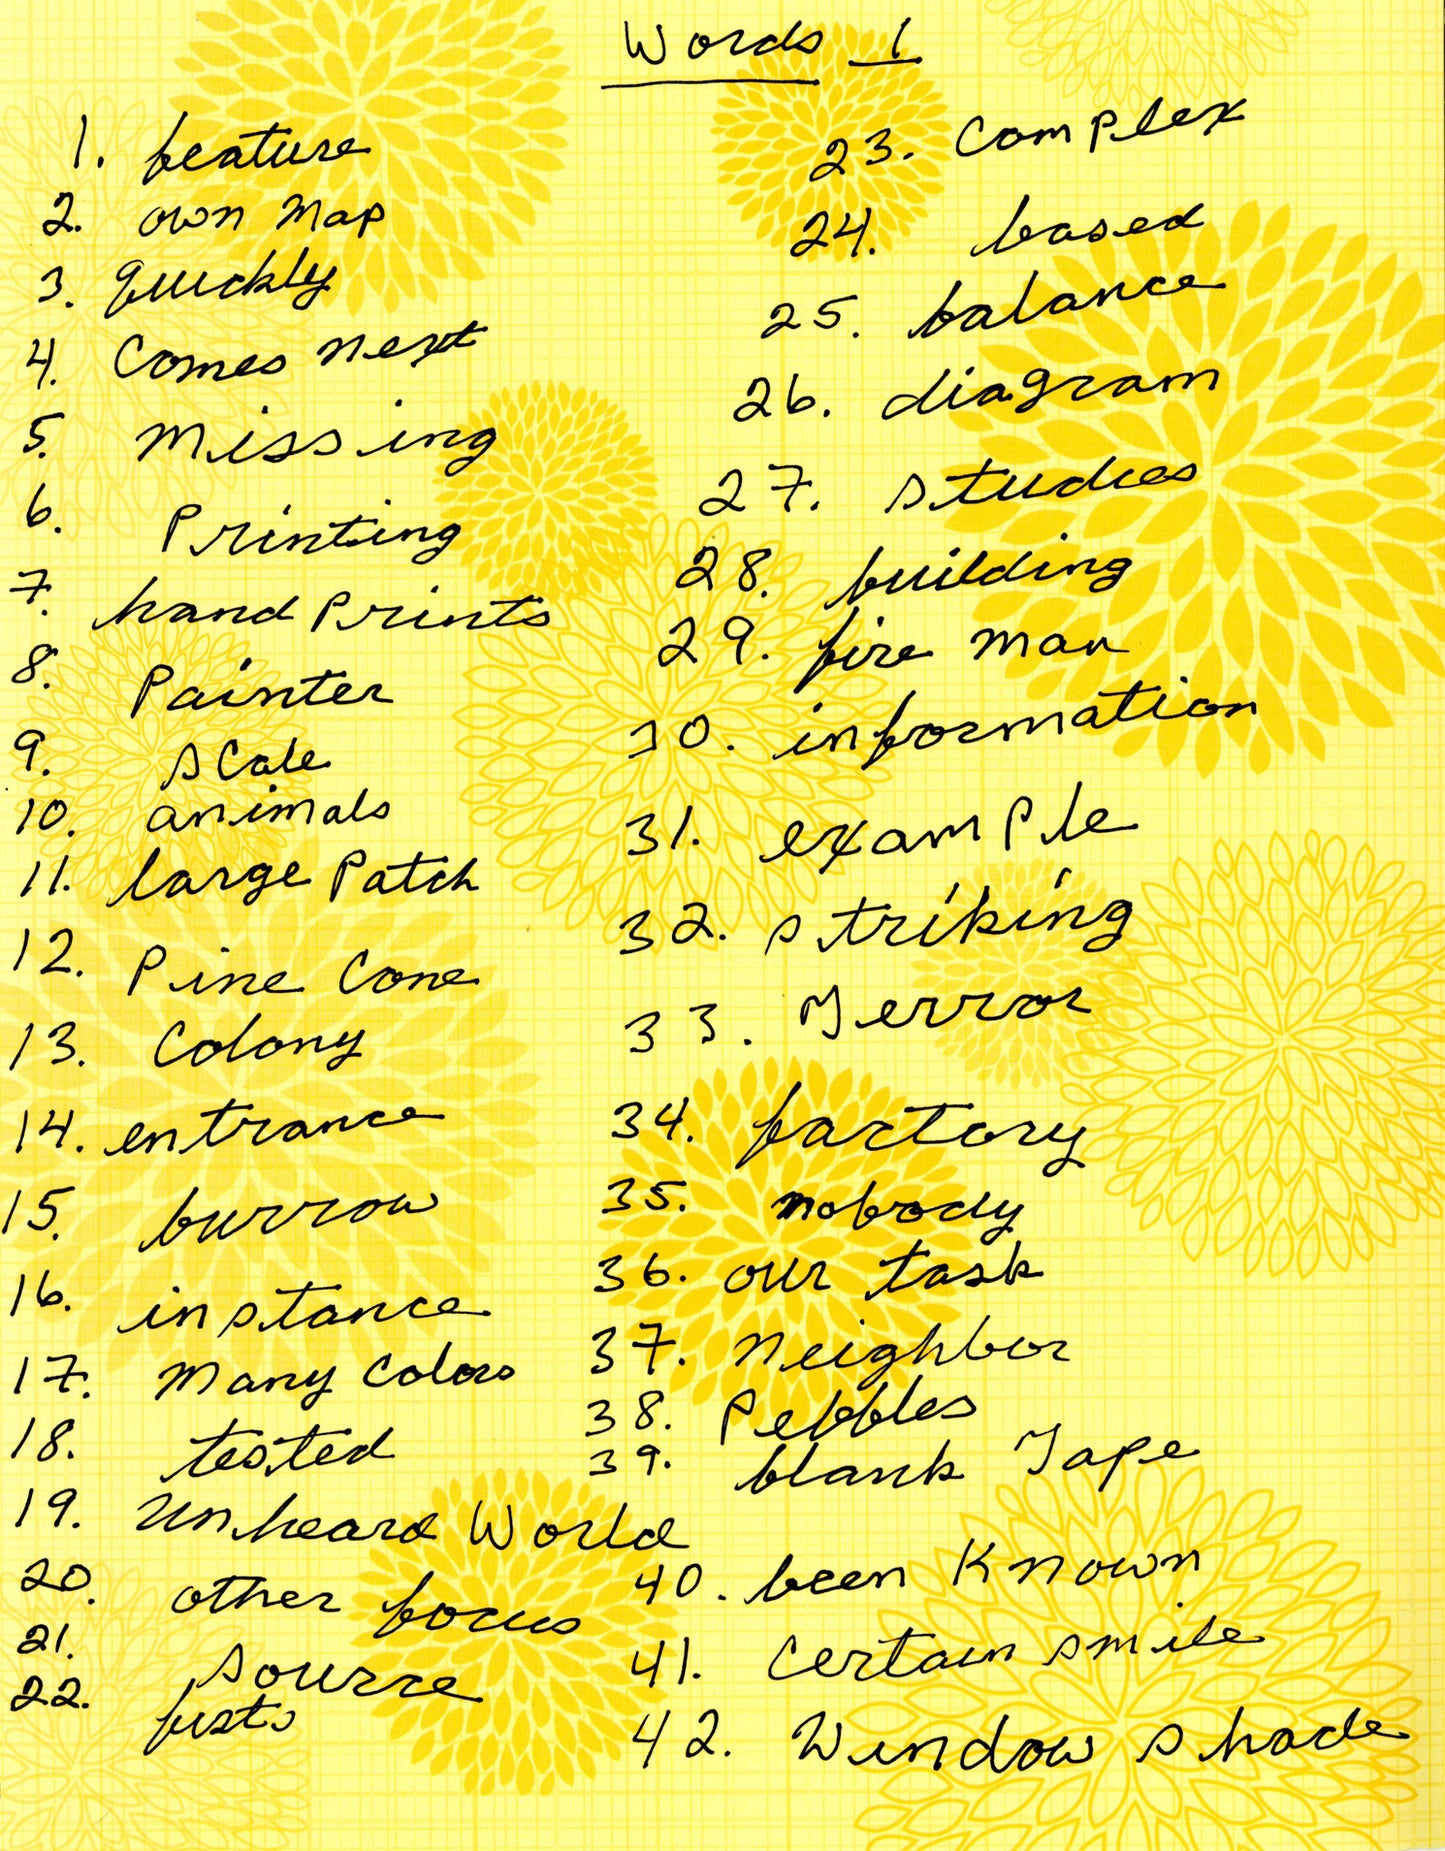 Words 1
1. feature
2. own map
3. quickly
4. Comes next
5. missing
6. Printing
7. hand Prints
8. Painter
9. scale
10. animals
11. large Patch
12. Pine Cone
13. Colony
14. entrance
15. burrow
16. instance
17. many Colors
18. tested
19. Unheard World
20. other focus
21. source
22. fists
23. Complex
24. based
25. balance
26. diagram
27. studies
28. building
29. fire man
30. information
31. example
32. striking
33. Terror
34. factory
35. nobody
36. our task
37. neighbor
38. Pebbles
39. blank Tape
40. been Known
41. Certain smile
42. Window shade